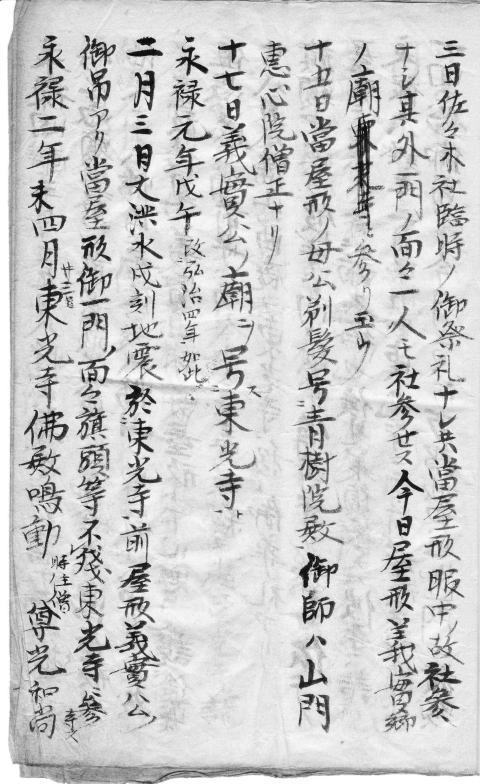 三日佐々木社臨時ノ御祭礼ナレ共當屋形服中ノ故社参
ナシ其外一門ノ面々一人モ社参セス今日屋形義實郷
ノ廟ニ参リ玉フ
十五日當屋形ノ母公剃髪号青樹院殿御師ハ山門
恵心院僧正ナリ
十七日義實公ノ廟ヲ号ス東光寺ト
永禄元年戊午改弘治四年如此
二月三日大洪水戌刻地震於東光寺前屋形義實公
御吊アリ當屋形御一門ノ面々旗頭等不残東光寺ニ参
永禄二年未四月廿三日東光寺佛殿鳴動時住僧尊光和尚